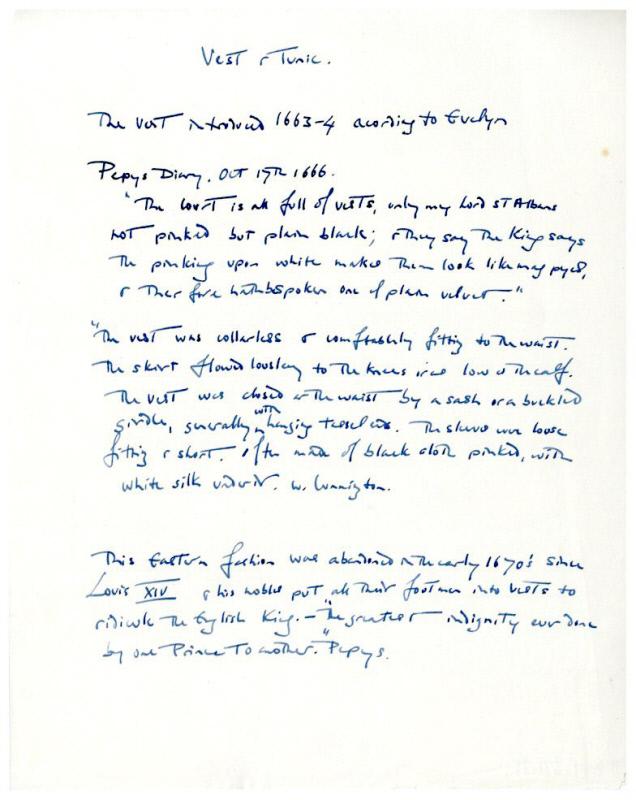 Vest & Tunic.
The vest introduced 1663-4 acording to Evelyn
Pepys Diary. Oct 17th 1666.
"The court is all full of vests, only my Lord St Albans
not pinked but plain black; & they say the King says
the pinking upon white makes them look like magpyes,
& therfore hath bespoken one of plain velvet."
"The vest was collarless & comfortably fitting to the waist.
The skirt flowed loosley to the knees or as low as the calf.
The vest was closed at the waist by a sash or a buckled
girdle, generally with hanging tassel ends. The sleeve were loose
fitting & short. Often made of black cloth pinked, with
white silk under it. W. Cunnington.
This Eastern fashion was abandoned in the early 1670's since
Louis XIV & his nobles put all their footmen into vests to
ridicule the English King. – "The greatest indignity ever done
by one Prince to another." Pepys.